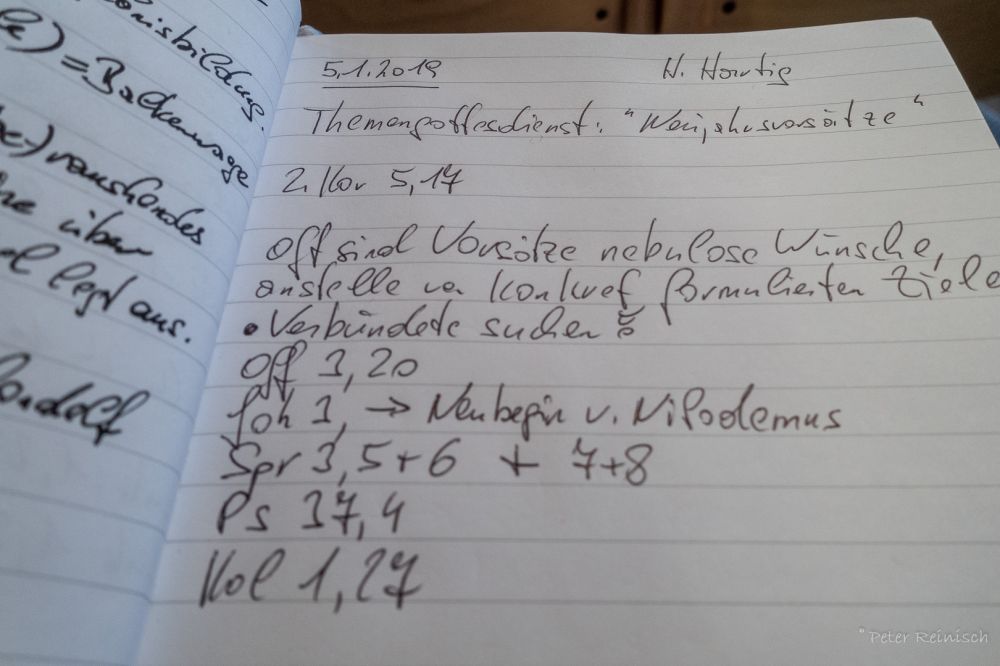 =Backenwage
über
legt aus.
5.1.2019 H.
Themengottesdienst: "Neujahrsvorsätze"
2. Kor 5,17
Oft sind Vorsätze nebulose Wünsche,
anstelle von konkret formulierten Ziele
• Verbündete suchen
Off 3,20
Joh 3, → Neubegin v. Nikodemus
Spr 3,5+6 + 7+8
Ps 37,4
Kol 1,27
Peter Reinisch